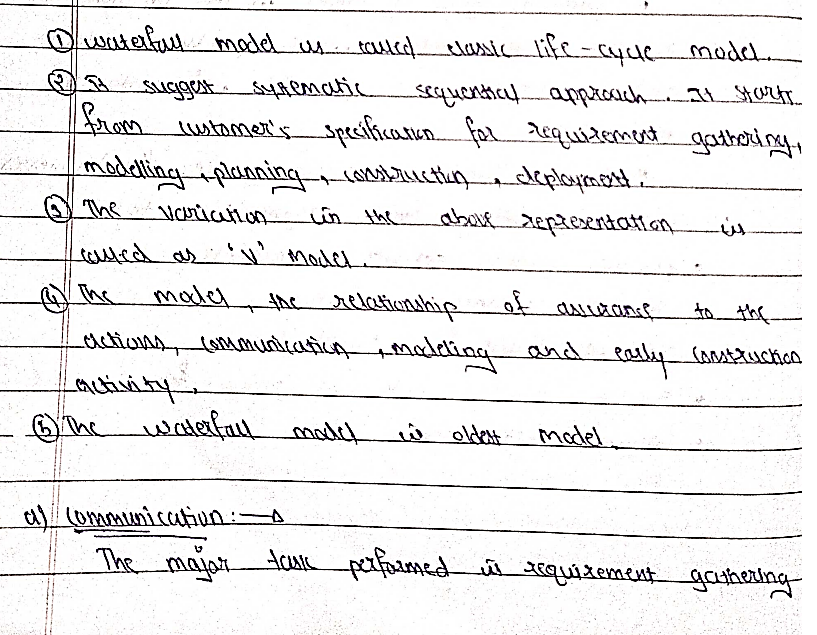 ① Waterfall model is called classic life-cycle model.
② It suggest systematic sequential approach. It starts
from customer's specification for requirement gathering,
modelling, planning, construction, deployment.
③ The variation in the above representation is
called as 'V' Model.
④ The model, the relationship of assurance to the
actions, communication, modeling and early construction
activity.
⑤ The waterfall model is oldest model.
a) Communication:—▷
The major task performed is requirement gathering